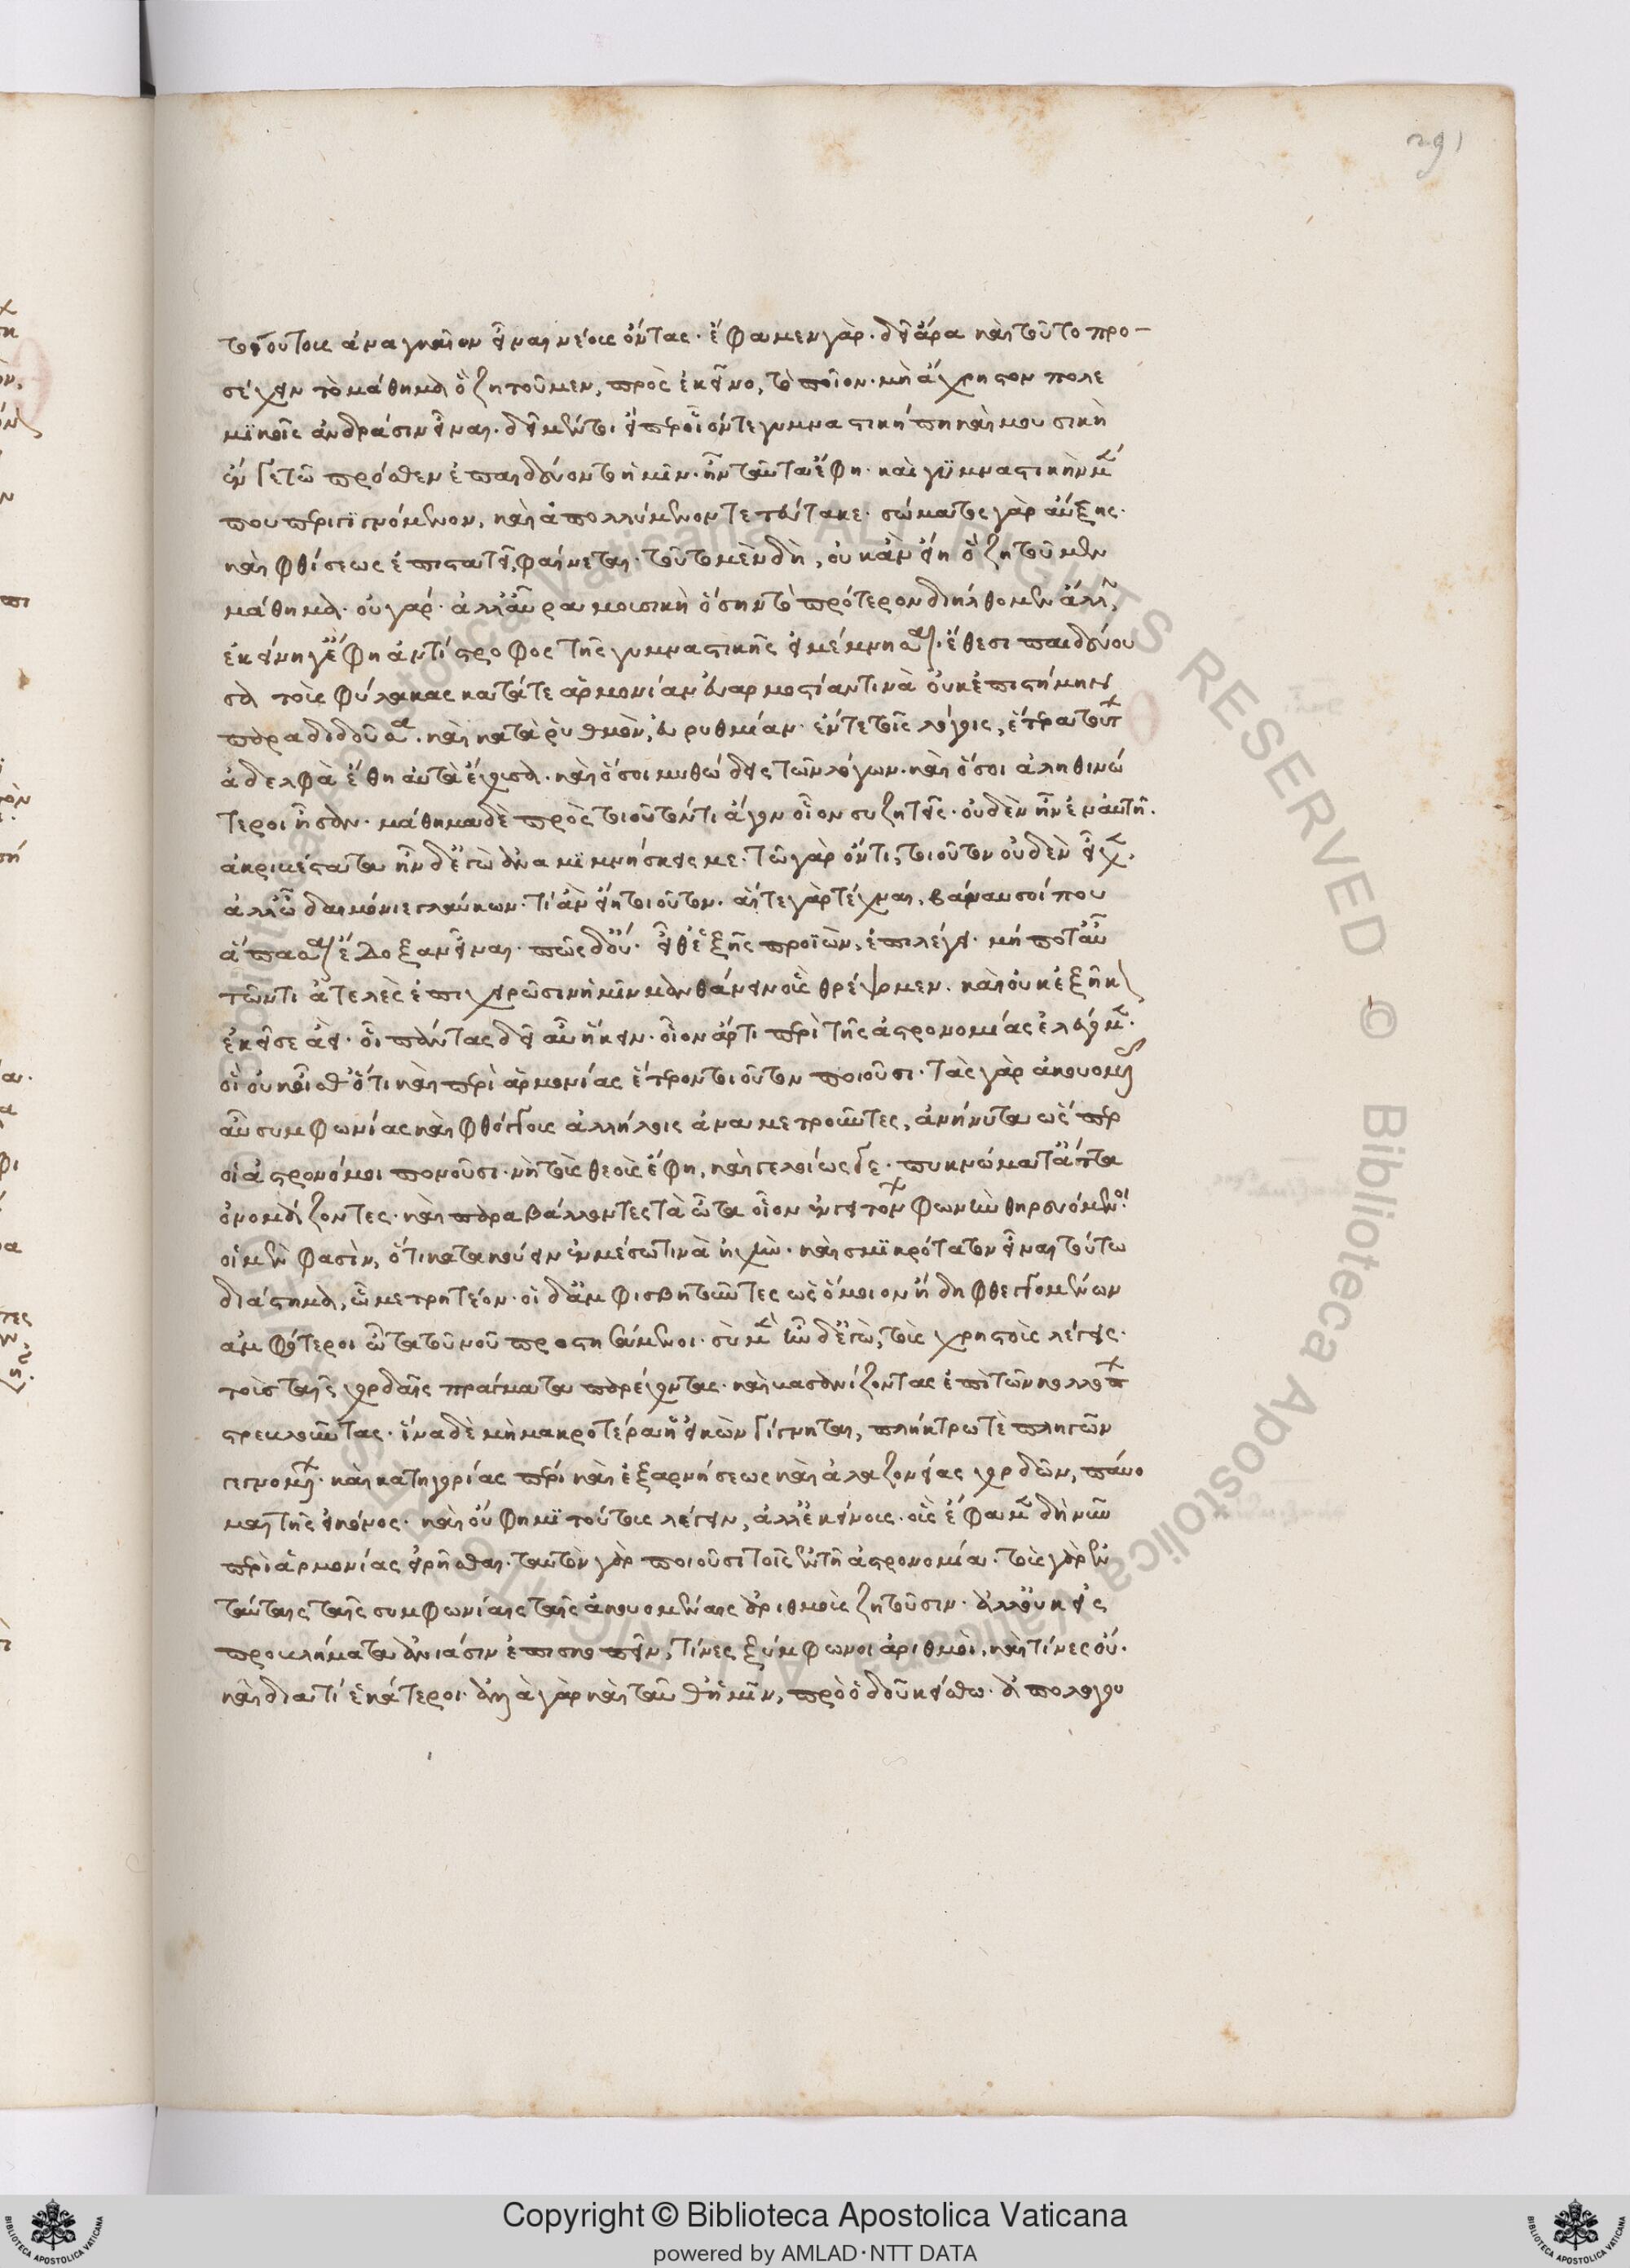 291
τούτους ἀναγκαῖον εἶναι νέους ὄντας· ἔφαμεν γάρ. δεῖ ἄρα καὶ τοῦτο προ-
σέχειν τὸ μάθημα ὃ ζητοῦμεν, πρὸς ἐκείνῳ, τὸ ποῖον· μὴ ἄχρηστον πολε
μϊκοῖς ἀνδράσιν εἶναι.
ἐν γε τῷ πρόσθεν ἐπαιδεύοντο ἡμῖν. ἦν ταῦτα ἔφη. καὶ γϋμναστικὴ μὲν
που περὶ γϊγνόμενον, καὶ ἀπολλύμενον τετεύτακε· σώματος γὰρ αὔξης·
καὶ φθίσεως ἐπιστατεῖ, φαίνεται. τοῦτο μὲν δὴ, οὐκ ἂν εἴη ὃ ζητοῦμεν
μάθημα. οὐ γάρ. ἀλλ' ἆρα μουσικὴ ὅσην τὸ πρότερον διήλθομεν ἀλλ'
ἐκείνη γ' ἔφη ἀντίστροφος τῆς γυμναστικῆς εἰ μέμνησαι. ἔθεσι παιδεύου
σα τοὺς φύλακας κατά τε ἁρμονίαν εὐαρμοστίαν τινὰ οὐκ ἐπιστήμην
παραδιδοῦσα. καὶ κατὰ ῥυθμὸν, εὐρυθμίαν· ἔν τε τοῖς λόγοις, ἕτερα τούτων
ἀδελφὰ ἔθη ἄττα ἔχουσα. καὶ ὅσοι μυθώδεις τῶν λόγων. καὶ ὅσοι ἀληθινώ
τεροι ἦσαν. μάθημα δὲ πρὸς τοιοῦτόν τι ἄγον οἷον σὺ ζητεῖς· οὐδὲν ἦν ἐν αὐτῇ.
ἀκριβέστατα ἦν δ' ἐγὼ ἀναμϊμνήσκεις με. τῷ γὰρ ὄντι, τοιοῦτον οὐδὲν εἶχ.
ἀλλ' ὦ δαιμόνιε γλαύκων. τί ἂν εἴη τοιοῦτον. αἵ τε γὰρ τέχναι, βάναυσοί που
ἅπασαι ἔδοξαν εἶναι. πῶς δ' οὔ. εἶθ' ἑξῆς προϊὼν, ἐπιλέγει. μή ποτ' αὖ
τῶν τι ἀτελὲς ἐπιχειρῶσιν ἡμῖν μανθάνειν οὓς θρέψομεν. καὶ οὐκ ἐξῆκ
ἐκεῖσε ἀεὶ. οἷ πάντας δεῖ ἀφήκειν. οἷον ἄρτι περὶ τῆς ἀστρονομίας ἐλέγομεν.
ἢ οὐκ οἶσθ' ὅτι καὶ περὶ ἁρμονίας ἕτερον τοιοῦτον ποιοῦσι. τὰς γὰρ ἀκουομένας
αὖ συμφωνίας καὶ φθόγγους ἀλλήλοις ἀναμετροῦντες, ἀνήνυτα ὥσπερ
οἱ ἀστρονόμοι πονοῦσι. νὴ τοὺς θεοὺς ἔφη, καὶ γελοίως γε. πυκνώματ' ἄττα
ὀνομάζοντες. καὶ παραβάλλοντες τὰ ὦτα οἷον ἐκ γειτόνων φωνὴν θηρευόμενοι
οἱ μὲν φασὶν, ὅτι κατακούειν ἐν μέσῳ τινὰ ἠχὴν. καὶ σμϊκρότατον εἶναι τοῦτο
διάστημα, ᾧ μετρητέον. οἱ δ' ἀμφισβητοῦντες ὡς ὅμοιον ἤδη φθεγγομένων
ἀμφότεροι ὦτα τοῦ νοῦ προστησάμενοι. σὺ μὲν ἦν δ' ἐγὼ, τοὺς χρηστοὺς λέγεις.
τοὺς ταῖς χορδαῖς πράγματα παρέχοντας. καὶ βασανίζοντας ἐπὶ τῶν κολλόπων
στρεβλοῦντας. ἵνα δὲ μὴ μακροτέρα ἡ εἰκὼν γίγνηται, πλήκτρῳ τε πληγῶν
γιγνομένων. καὶ κατηγορίας πέρι καὶ ἐξαρνήσεως καὶ ἀλαζονείας χορδῶν, παύο
μαι τῆς εἰκόνος. καὶ οὔ φημϊ τούτους λέγειν, ἀλλ' ἐκείνους. οὓς ἔφαμεν δὴ νῦν
περὶ ἁρμονίας ἐρήσεσθαι. ταυτὸν γὰρ ποιοῦσι τοῖς ἐν τῇ ἀστρονομίᾳ. τοὺς γὰρ ἐν
ταύταις ταῖς συμφωνίαις ταῖς ἀκουομέναις ἀριθμοὺς ζητοῦσιν. ἀλλ' οὐκ εἰς
προβλήματα ἀνιάσιν ἐπισκοπεῖν, τίνες ξύμφωνοι ἀριθμοὶ, καὶ τίνες οὔ.
καὶ διατί ἑκάτεροι.